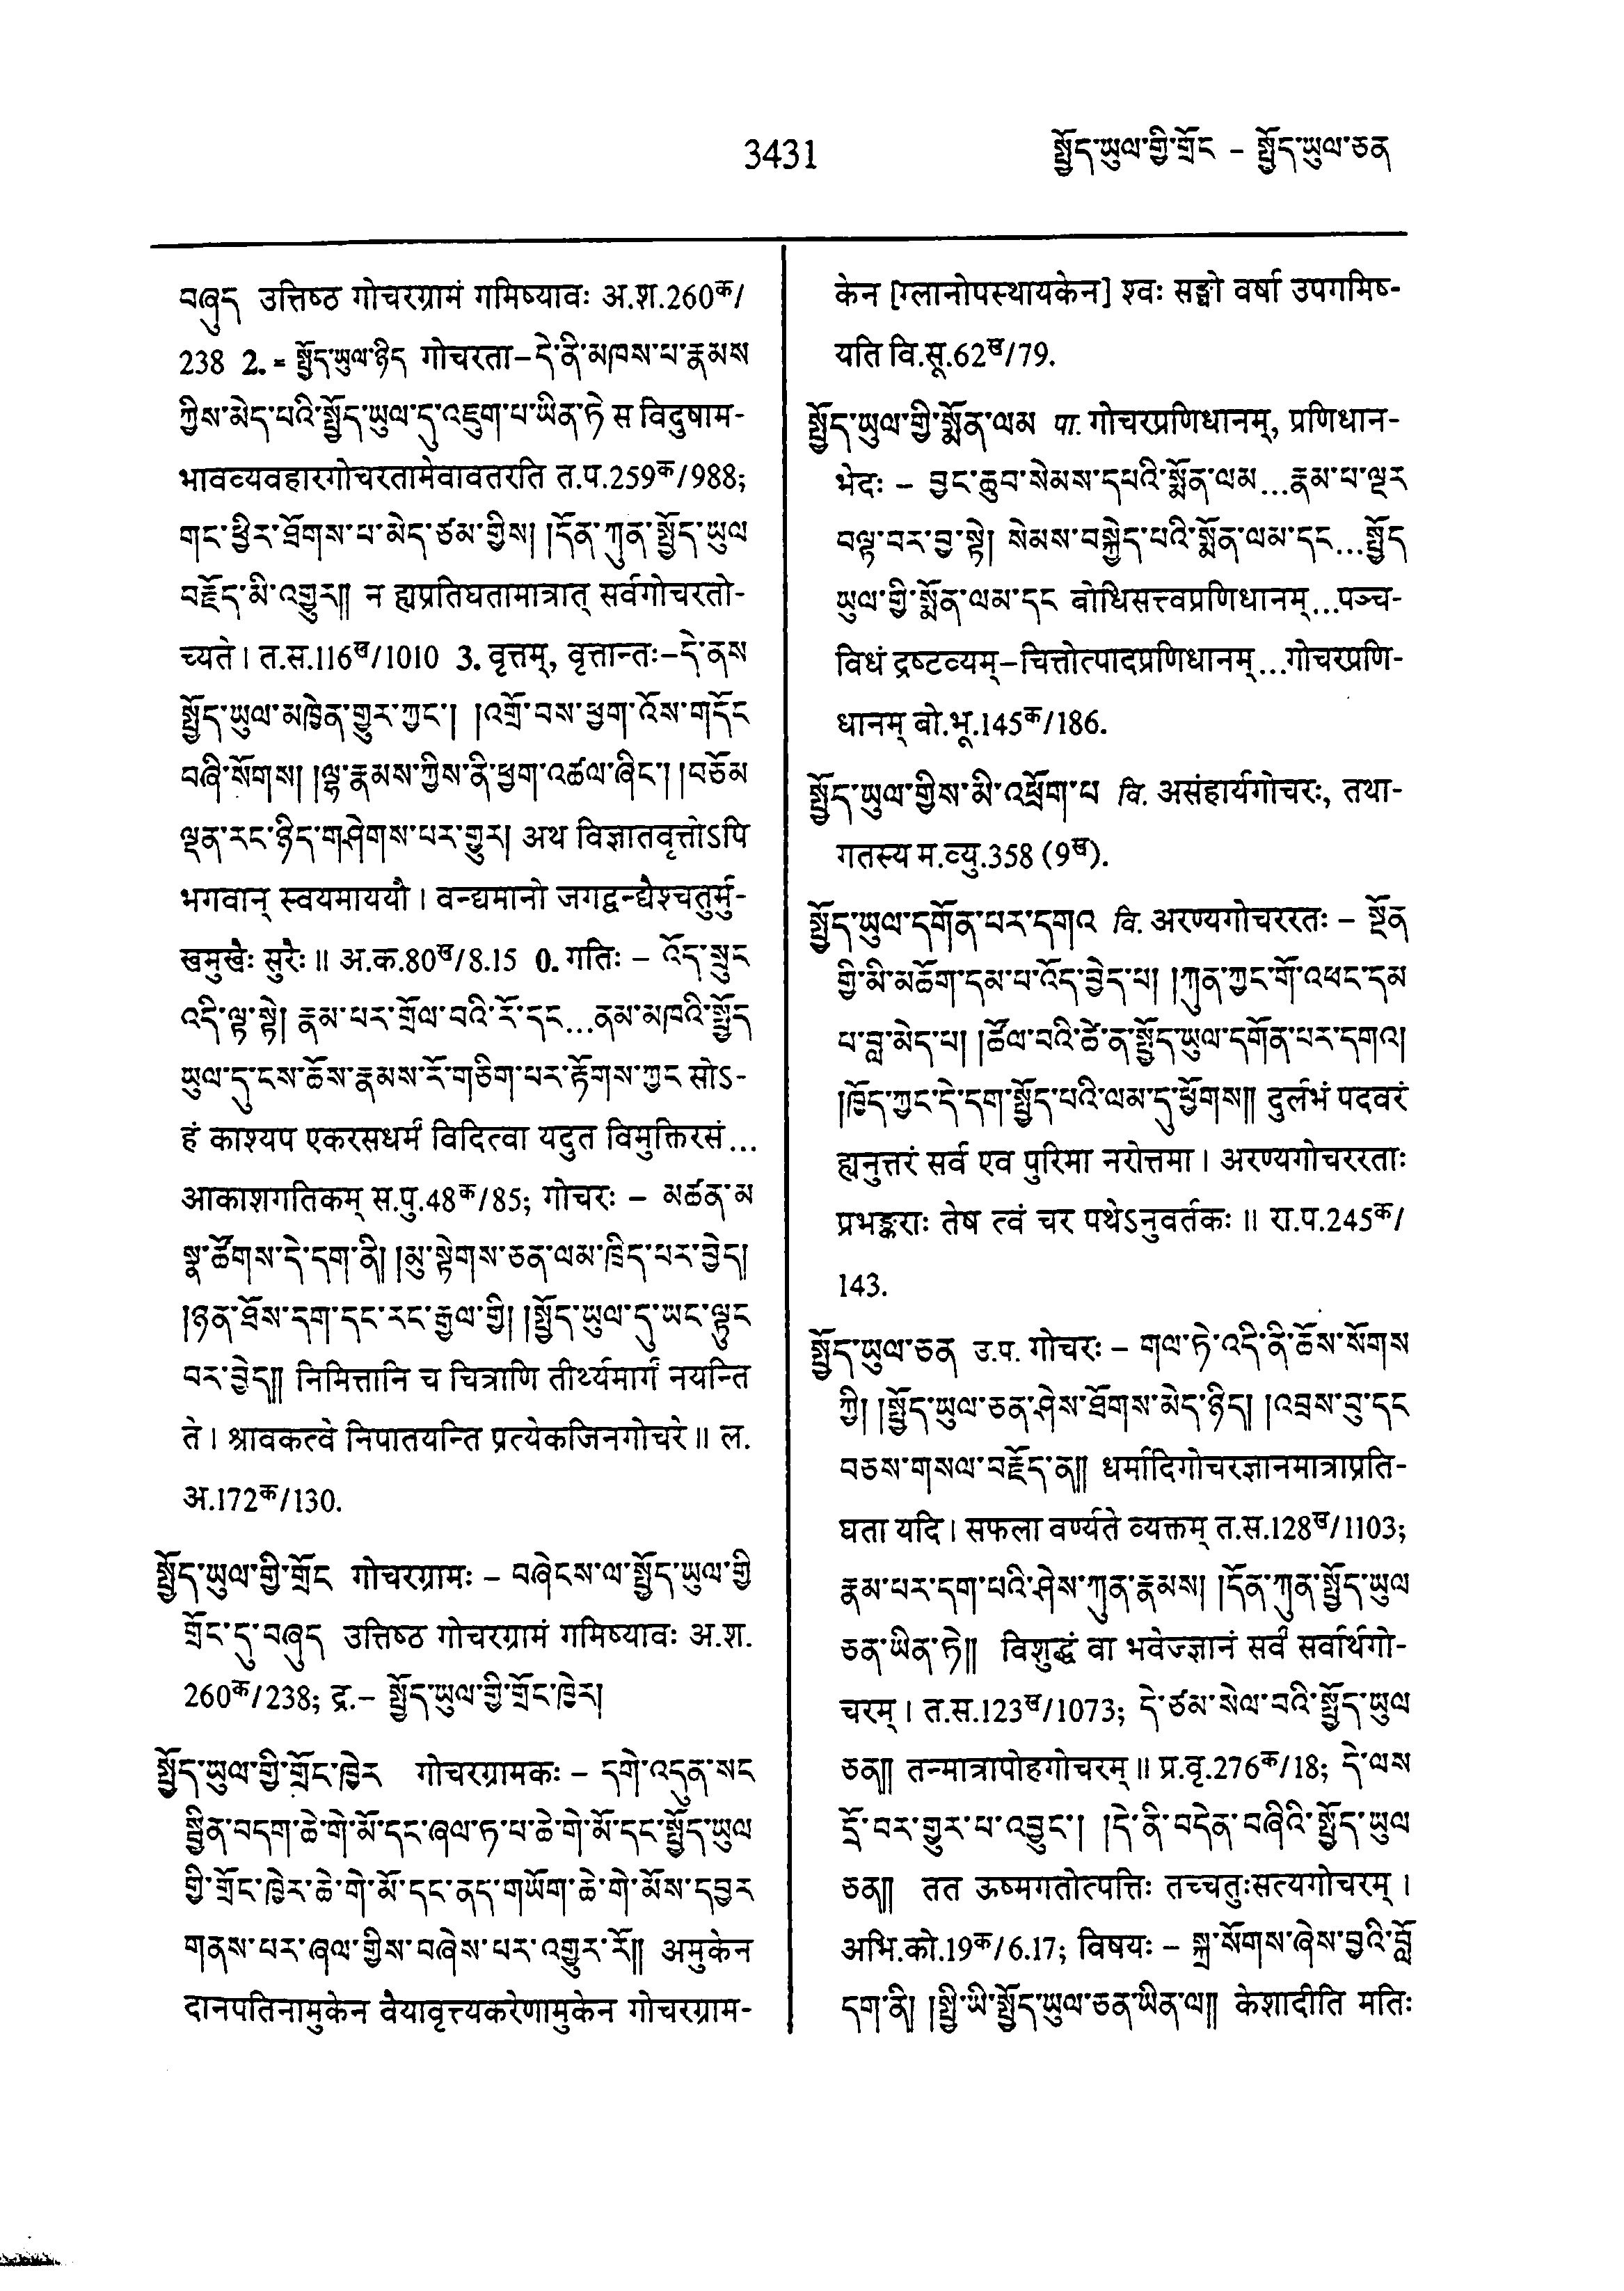 3431
སྤྱོད་ཡུལ་གྱི་གྲོང – སྤྱོད་ཡུལ་ཅན
བཞུད उत्तिष्ठ गोचरग्रामं गमिष्यावः अ.श.260क/
238 2. = སྤྱོད་ཡུལ་ཉིད गोचरता–དེ་ནི་མཁས་པ་རྣམས
ཀྱིས་མེད་པའི་སྤྱོད་ཡུལ་དུ་འཇུག་པ་ཡིན་ཏེ स विदुषाम-
भावव्यवहारगोचरतामेवावतरति त.प.259क/988;
གང་ཕྱིར་ཐོགས་པ་མེད་ཙམ་གྱིས། །དོན་ཀུན་སྤྱོད་ཡུལ
བརྗོད་མི་འགྱུར།། न ह्यप्रतिघतामात्रात् सर्वगोचरतो-
च्यते। त.स.116ख/1010 3. वृत्तम्, वृत्तान्तः–དེ་ནས
སྤྱོད་ཡུལ་མཁྱེན་གྱུར་ཀྱང་། །འགྲོ་བས་ཕྱག་འོས་གདོང
བཞི་སོགས། །ལྷ་རྣམས་ཀྱིས་ནི་ཕྱག་འཚལ་ཞིང་། །བཅོམ
ལྡན་རང་ཉིད་གཤེགས་པར་གྱུར། अथ विज्ञातवृत्तोऽपि
भगवान् स्वयमाययौ। वन्द्यमानो जगद्वन्द्यैश्चतुर्मु-
खमुखैः सुरैः॥ अ.क.80ख/8.15 0. गतिः – འོད་སྲུང
འདི་ལྟ་སྟེ། རྣམ་པར་གྲོལ་བའི་རོ་དང...ནམ་མཁའི་སྤྱོད
ཡུལ་དུ་ངས་ཆོས་རྣམས་རོ་གཅིག་པར་རྟོགས་ཀྱང सोऽ-
हं काश्यप एकरसधर्मं विदित्वा यदुत विमुक्तिरसं...
आकाशगतिकम् स.पु.48क/85; गोचरः – མཚན་མ
སྣ་ཚོགས་དེ་དག་ནི། །མུ་སྟེགས་ཅན་ལམ་ཁྲིད་པར་བྱེད།
།ཉན་ཐོས་དག་དང་རང་རྒྱལ་གྱི། །སྤྱོད་ཡུལ་དུ་ཡང་ལྟུང
བར་བྱེད།། निमित्तानि च चित्राणि तीर्थ्यमार्गं नयन्ति
ते। श्रावकत्वे निपातयन्ति प्रत्येकजिनगोचरे॥ ल.
अ.172क/130.
སྤྱོད་ཡུལ་གྱི་གྲོང गोचरग्रामः – བཞེངས་ལ་སྤྱོད་ཡུལ་གྱི
གྲོང་དུ་བཞུད उत्तिष्ठ गोचरग्रामं गमिष्यावः अ.श.
260क/238; द्र.– སྤྱོད་ཡུལ་གྱི་གྲོང་ཁྱེར།
སྤྱོད་ཡུལ་གྱི་གྲོང་ཁྱེར गोचरग्रामकः – དགེ་འདུན་སང
སྦྱིན་བདག་ཆེ་གེ་མོ་དང་ཞལ་ཏ་པ་ཆེ་གེ་མོ་དང་སྤྱོད་ཡུལ
གྱི་གྲོང་ཁྱེར་ཆེ་གེ་མོ་དང་ནད་གཡོག་ཆེ་གེ་མོས་དབྱར
གནས་པར་ཞལ་གྱིས་བཞེས་པར་འགྱུར་རོ།། अमुकेन
दानपतिनामुकेन वैयावृत्त्यकरेणामुकेन गोचरग्राम-
केन [ग्लानोपस्थायकेन] श्वः सङ्घो वर्षा उपगमिष्-
यति वि.सू.62ख/79.
སྤྱོད་ཡུལ་གྱི་སྨོན་ལམ पा. गोचरप्रणिधानम्, प्रणिधान-
भेदः – བྱང་ཆུབ་སེམས་དཔའི་སྨོན་ལམ...རྣམ་པ་ལྔར
བལྟ་བར་བྱ་སྟེ། སེམས་བསྐྱེད་པའི་སྨོན་ལམ་དང...སྤྱོད
ཡུལ་གྱི་སྨོན་ལམ་དང बोधिसत्त्वप्रणिधानम्...पञ्च-
विधं द्रष्टव्यम्–चित्तोत्पादप्रणिधानम्...गोचरप्रणि-
धानम् बो.भू.145क/186.
སྤྱོད་ཡུལ་གྱིས་མི་འཕྲོག་པ वि. असंहार्यगोचरः, तथा-
गतस्य म.व्यु.358 (9ख).
སྤྱོད་ཡུལ་དགོན་པར་དགའ वि. अरण्यगोचररतः – སྔོན
གྱི་མི་མཆོག་དམ་པ་འོད་བྱེད་པ། །ཀུན་ཀྱང་གོ་འཕང་དམ
པ་བླ་མེད་པ། །ཚོལ་བའི་ཚེ་ན་སྤྱོད་ཡུལ་དགོན་པར་དགའ།
།ཁྱོད་ཀྱང་དེ་དག་སྤྱོད་པའི་ལམ་དུ་ཕྱོགས།། दुर्लभं पदवरं
ह्यनुत्तरं सर्व एव पुरिमा नरोत्तमा। अरण्यगोचररताः
प्रभङ्कराः तेष त्वं चर पथेऽनुवर्तकः॥ रा.प.245क/
143.
སྤྱོད་ཡུལ་ཅན उ.प. गोचरः – གལ་ཏེ་འདི་ནི་ཆོས་སོགས
ཀྱི། །སྤྱོད་ཡུལ་ཅན་ཤེས་ཐོགས་མེད་ཉིད། །འབྲས་བུ་དང
བཅས་གསལ་བརྗོད་ན།། धर्मादिगोचरज्ञानमात्राप्रति-
घता यदि। सफला वर्ण्यते व्यक्तम् त.स.128ख/1103;
རྣམ་པར་དག་པའི་ཤེས་ཀུན་རྣམས། །དོན་ཀུན་སྤྱོད་ཡུལ
ཅན་ཡིན་ཏེ།། विशुद्धं वा भवेज्ज्ञानं सर्वं सर्वार्थगो-
चरम्। त.स.123ख/1073; དེ་ཙམ་སེལ་བའི་སྤྱོད་ཡུལ
ཅན།། तन्मात्रापोहगोचरम्॥ प्र.वृ.276क/18; དེ་ལས
དྲོ་བར་གྱུར་པ་འབྱུང་། །དེ་ནི་བདེན་བཞིའི་སྤྱོད་ཡུལ
ཅན།། तत ऊष्मगतोत्पत्तिः तच्चतुःसत्यगोचरम्।
अभि.को.19क/6.17; विषयः – སྐྲ་སོགས་ཞེས་བྱའི་བློ
དག་ནི། །སྤྱི་ཡི་སྤྱོད་ཡུལ་ཅན་ཡིན་ལ།། केशादीति मतिः